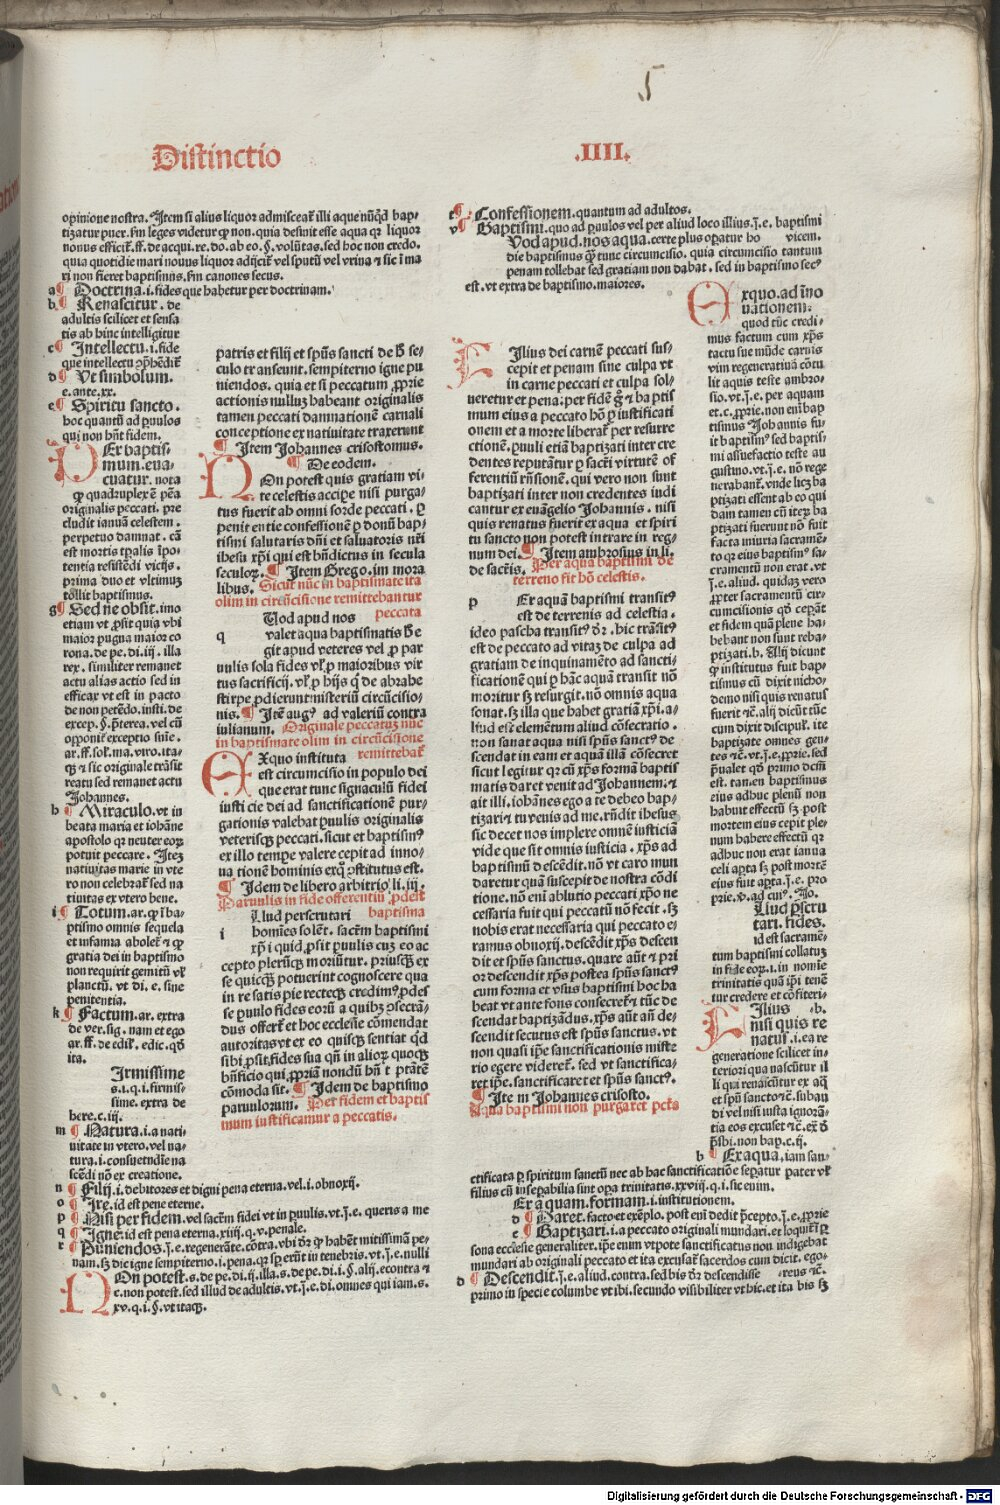 5
Distinctio .IIII.
opinione nostra. Item si alius liquor admisceat̃ illi aque nũqd bap-
tizatur puer. fm leges videtur ꝙ non. quia desinit esse aqua qꝛ liquor
nonus efficit̃. ff. de acqui. re. do. ab eo. §. volũtas. sed hoc non credo.
quia quotidie mari nouus liquor adijcit̃ vel sputũ vel vrina ⁊ sic ĩ ma
ri non fieret baptismus. fm canones secus.
a ¶ Doctrina.i. fides que habetur per doctrinam.
b ¶ Renascitur. de
adultis scilicet et sensa
tis ab hinc intelligitur
c ¶ Intellectu.i. fide
que intellectu ꝯp̃hẽdit̃
d ¶ Vt simbolum.
e. ante. xx.
e ¶ Spiritu sancto.
hoc quantũ ad ꝑuulos
qui non hñt fidem.
PEr baptis-
mum. eua-
cuatur. nota
ꝙ quadruplex ẽ pẽa
originalis peccati. pre
cludit ianuã celestem.
perpetuo damnat. cã
est mortis tp̃alis ĩpo-
tentia resistẽdi vicijs.
prima duo et vltimuz
tollit baptismus.
g ¶ Sed ne obsit. imo
etiam vt ꝓsit quia vbi
maior pugna maior co
rona. de pe. di. iij. illa
rex. similiter remanet
actu alias actio sed in
efficax vt est in pacto
de non petẽdo. insti. de
excep. §. p̃terea. vel cũ
opponit̃ exceptio snĩe.
ar. ff. sol. ma. viro. ita-
qꝫ ⁊ sic originale trãsit
reatu sed remanet actu
Johannes.
h ¶ Miraculo. vt in
beata maria et iohãne
apostolo qꝛ neuter eoꝝ
potuit peccare. Itez
natiuitas marie in vte
ro non celebrat̃ sed na
tiuitas ex vtero bene.
i ¶ Totum. ar. ꝙ ĩ ba-
ptismo omnis sequela
et infamia abolet̃ ⁊ ꝙ
gratia dei in baptismo
non requirit gemitũ vl̃
planctũ. vt di. e. sine
penitentia.
k ¶ Factum. ar. extra
de ver. sig. nam et ego
ar. ff. de edil. edic. qð
ita.
Irmissime
s.i.q.i. firmis-
sime. extra de
here. c. iij.
m ¶ Natura.i. a nati-
uitate in vtero. vel na-
tura.i. consuetudie na
scẽdi nõ ex creatione.
n ¶ Filij.i. debitores et digni pena eterna. vel.i. obnoxij.
o ¶ Ire. id est pene eterne.
p ¶ Nisi per fidem. vel sacrm̃ fidei vt in ꝑuulis. vt.j. e. queris a me
q ¶ Igne. id est pena eterna. xiiij. q. v. penale.
r ¶ Puniendos.j. e. regenerãte. cõtra. vbi dr̃ ꝙ habẽt mitissimã pe-
nam. sꝫ dic igne sempiterno.i. pena. qꝛ sꝑ erũt in tenebris. vt.j. e. nulli
NOn potest. s. de pe. di. ij. illa. s. de pe. di. i. §. alij. econtra ⁊
e. non potest. sed illud de adultis. vt.j. e. di. omnes qui iam. s.
xv. q. i. §. vt itaqꝫ.
patris et filij et spũs sancti de h̃ se-
culo trãseunt. sempiterno igne pu
niendos. quia et si peccatum ꝓprie
actionis nulluz habeant originalis
tamen peccati damnationẽ carnali
conceptione ex natiuitate traxerunt
¶ Item Johannes crisostomus.
¶ De eodem.
NOn potest quis gratiam vi-
te celestis accipe nisi purga-
tus fuerit ab omni sorde peccati. ꝑ
penitentie confessionẽ ꝑ donũ bap-
tismi salutaris dñi et saluatoris nr̃i
ihesu xp̃i qui est bñdictus in secula
seculoꝝ. ¶ Item Grego. im mora
libus. Sicut nũc in baptismate ita
olim in circũcisione remittebantur
peccata
q Uod apud nos
valet aqua baptismatis h̃ e
git apud veteres vel ꝓ par
uulis sola fides vl̃ ꝓ maioribus vir
tus sacrificij. vl̃ ꝓ hijs ꝗ de abrahe
stirpe ꝓdierunt misteriũ circũcisio-
nis. ¶ Itẽ augꝰ ad valeriũ contra
iulianum. Originale peccatuz nũc
in baptismate olim in circũcisione
remittebat̃
EXquo instituta
est circumcisio in populo dei
que erat tunc signaculũ fidei
iusticie dei ad sanctificationẽ pur-
gationis valebat ꝑuulis originalis
veterisqꝫ peccati. sicut et baptismꝰ
ex illo tempe valere cepit ad inno-
uationẽ hominis exꝗ ꝯstitutus est.
¶ Idem de libero arbitrio li. iij.
Paruulis in fide offerentiũ ꝓdest
baptisma
i Llud perscrutari
homĩes solẽt. sacrm̃ baptismi
xp̃i quid ꝓsit ꝑuulis cuꝫ eo ac
cepto plerũqꝫ moriũtur. priusqꝫ ex
se quicqꝫ potuerint cognoscere qua
in re satis pie recteqꝫ credimꝰ ꝓdes
se ꝑuulo fides eorũ a quibꝫ ꝯsecrã-
dus offert̃ et hoc ecclesie cõmendat
autoritas vt ex eo quisqꝫ sentiat qd
sibi ꝓsit fides sua qñ in alioꝝ quoqꝫ
bñficio qui ꝓpriã nondũ hñt p̃tatẽ
cõmoda sit. ¶ Idem de baptismo
paruulorum. Per fidem et baptis
mum iustificamur a peccatis.
t ¶ Confessionem. quantum ad adultos.
v ¶ Baptismi. quo ad ꝑuulos vel per aliud loco illius.j. e. baptismi
vicem.
Vod apud. nos aqua. certe plus opatur ho
die baptismus ꝗ̃ tunc circumcisio. quia circumcisio tantum
penam tollebat sed gratiam non dabat. sed in baptismo secꝰ
est. vt extra de baptismo. maiores.
FIlius dei carnẽ peccati sus-
cepit et penam sine culpa vt
in carne peccati et culpa sol-
ueretur et pena: per fidẽ g̃ ⁊ baptis
mum eius a peccato hõ ꝑ iustificati
onem et a morte liberat̃ per resurre
ctionẽ. ꝑuuli etiã baptizati inter cre
dentes reputãtur ꝑ sacri virtutẽ of
ferentiũ rñsionẽ. qui vero non sunt
baptizati inter non credentes iudi
cantur ex euãgelio Johannis. nisi
quis renatus fuerit ex aqua et spiri
tu sancto non potest intrare in reg-
num dei. ¶ Item ambrosius in li.
de sacr̃is. Per aquã baptismi de
terreno fit hõ celestis.
p Er aquã baptismi transitꝰ
est de terrenis ad celestia.
ideo pascha transitꝰ dr̃. hic trãsitꝰ
est de peccato ad vitaꝫ de culpa ad
gratiam de inquinamẽto ad sancti-
ficationẽ qui ꝑ hãc aquã transit nõ
moritur sꝫ resurgit. nõ omnis aqua
sonat. sꝫ illa que habet gratiã xp̃i. a-
liud est elemẽtum aliud cõsecratio.
non sanat aqua nisi spũs sanctꝰ de
scendat in eam et aquã illã cõsecret
sicut legitur qꝛ cũ xp̃s formã baptis
matis daret venit ad Johannem: ⁊
ait illi. iohãnes ego a te debeo bap-
tizari ⁊ tu venis ad me. rñdit ihesus
sic decet nos implere omnẽ iusticiã
vide que sit omnis iusticia. xp̃s ad
baptismũ descẽdit. nõ vt caro mun
daretur quã suscepit de nostra cõdi
tione. nõ enĩ ablutio peccati xp̃o ne
cessaria fuit qui peccatũ nõ fecit. sꝫ
nobis erat necessaria qui peccato e-
ramus obnoxij. descẽdit xp̃s descen
dit et spũs sanctus. quare aũt ⁊ pri
or descendit xp̃s postea spũs sanctꝰ
cum forma et vsus baptismi hoc ha
beat vt ante fons consecret̃ ⁊ tũc de
scendat baptizãdus. xp̃s aũt añ de-
scendit secutus est spũs sanctus. vt
non quasi ip̃e sanctificationis miste
rio egere videret̃. sed vt sanctifica-
ret ip̃e. sanctificaret et spũs sanctꝰ.
¶ Item Johannes crisosto.
Aqua baptismi non purgaret pctã
EXquo. ad ĩno
uationem.
quod tũc credi-
mus factum cum xp̃s
tactu sue mũde carnis
vim regeneratiuã cõtu
lit aquis teste ambro-
sio. vt.j. e. per aquam
et. c. ꝓprie. non enĩ bap
tismus Johannis fu-
it baptismꝰ sed baptis-
mi assuefactio teste au
gustino. vt.j. e. nõ rege
nerabant̃. vnde licꝫ ba
ptizati essent ab eo qui
dam tamen cũ iteꝝ ba
ptizati fuerunt nõ fuit
facta iniuria sacramẽ-
to qꝛ eius baptismꝰ sa-
cramentũ non erat. vt
j. e. aliud. quidaꝫ vero
ꝓpter sacramentũ cir-
cumcisionis qð ceperãt
et fidem quã plene ha-
bebant non sunt reba-
ptizati. h. Alij dicunt
ꝙ institutus fuit bap-
tismus cũ dixit nicho-
demo nisi quis renatus
fuerit ⁊c̃. alij dicũt tũc
cum dixit discipul̃. ite
baptizate omnes gen-
tes ⁊c̃. vt.j. e. ꝓprie. sed
p̃ualet qð primo dictũ
est. tamen baptismus
eius adhuc plenũ non
habuit effectũ sꝫ post
mortem eius cepit ple-
num habere effectũ qꝛ
adhuc non erat ianua
celi apta sꝫ post mortẽ
eius fuit apta.j. e. pro
prie. v. ad cuiꝰ. Jo.
Llud ꝑscru
tari. fides.
id est sacramẽ-
tum baptismi collatuꝫ
in fide eoꝝ.i. in nomie
trinitatis quã ip̃i tenẽ
tur credere et cõfiteri.
FIlius .h.
nisi quis re
natus.i. ea re
generatione scilicet in-
teriori qua nascũtur il
li qui renascũtur ex aq̃
et spũ sancto ⁊c̃. subau
di vel nisi iusta ignorã-
tia eos excuset ⁊c̃. ex̃ ð
p̃sbi. non bap. c. ij.
b ¶ Ex aqua, iam san-
ctificata ꝑ spiritum sanctũ nec ab hac sanctificatiõe sepatur pater vl̃
filius cũ insepabilia sint opa trinitatis. xxviij. q. i. sic enim.
Er aquam. formam.i. institutionem.
d ¶ Daret. facto et exẽplo. post enĩ dedit p̃cepto.j. e. ꝓprie
e ¶ Baptizari.i. a peccato originali mundari. et loquit̃ ꝑ
sona ecclesie generaliter. ip̃e enim vtpote sanctificatus non indigebat
mundari ab originali peccato et ita excusat̃ sacerdos cum dicit. ego-
reus ⁊c̃.
d ¶ Descendit.j. e. aliud. contra. sed his dr̃ descendisse
primo in specie columbe vt ibi. secundo visibiliter vt hic. et ita bis sꝫ
Digitalisierung gefördert durch die Deutsche Forschungsgemeinschaft - DFG